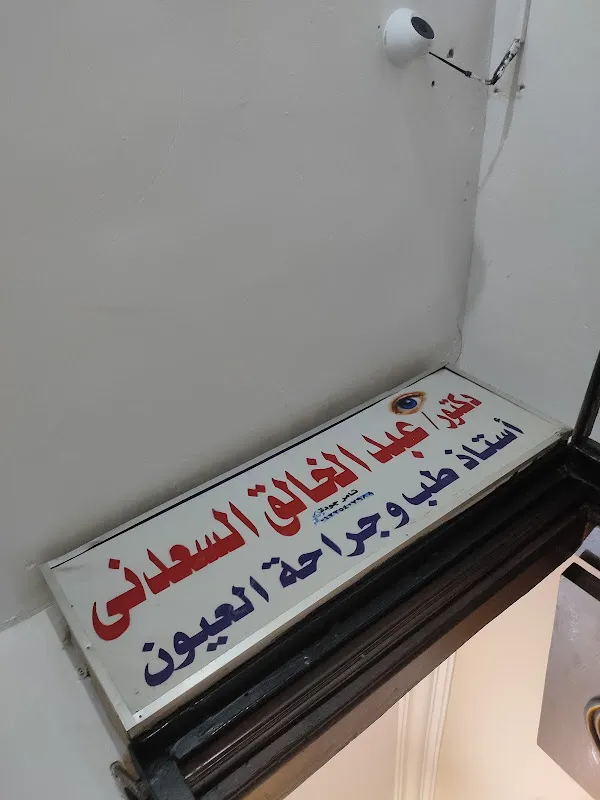 دكتور/ عبد الخالق السعدنى
أستاذ طب وجراحة العيون